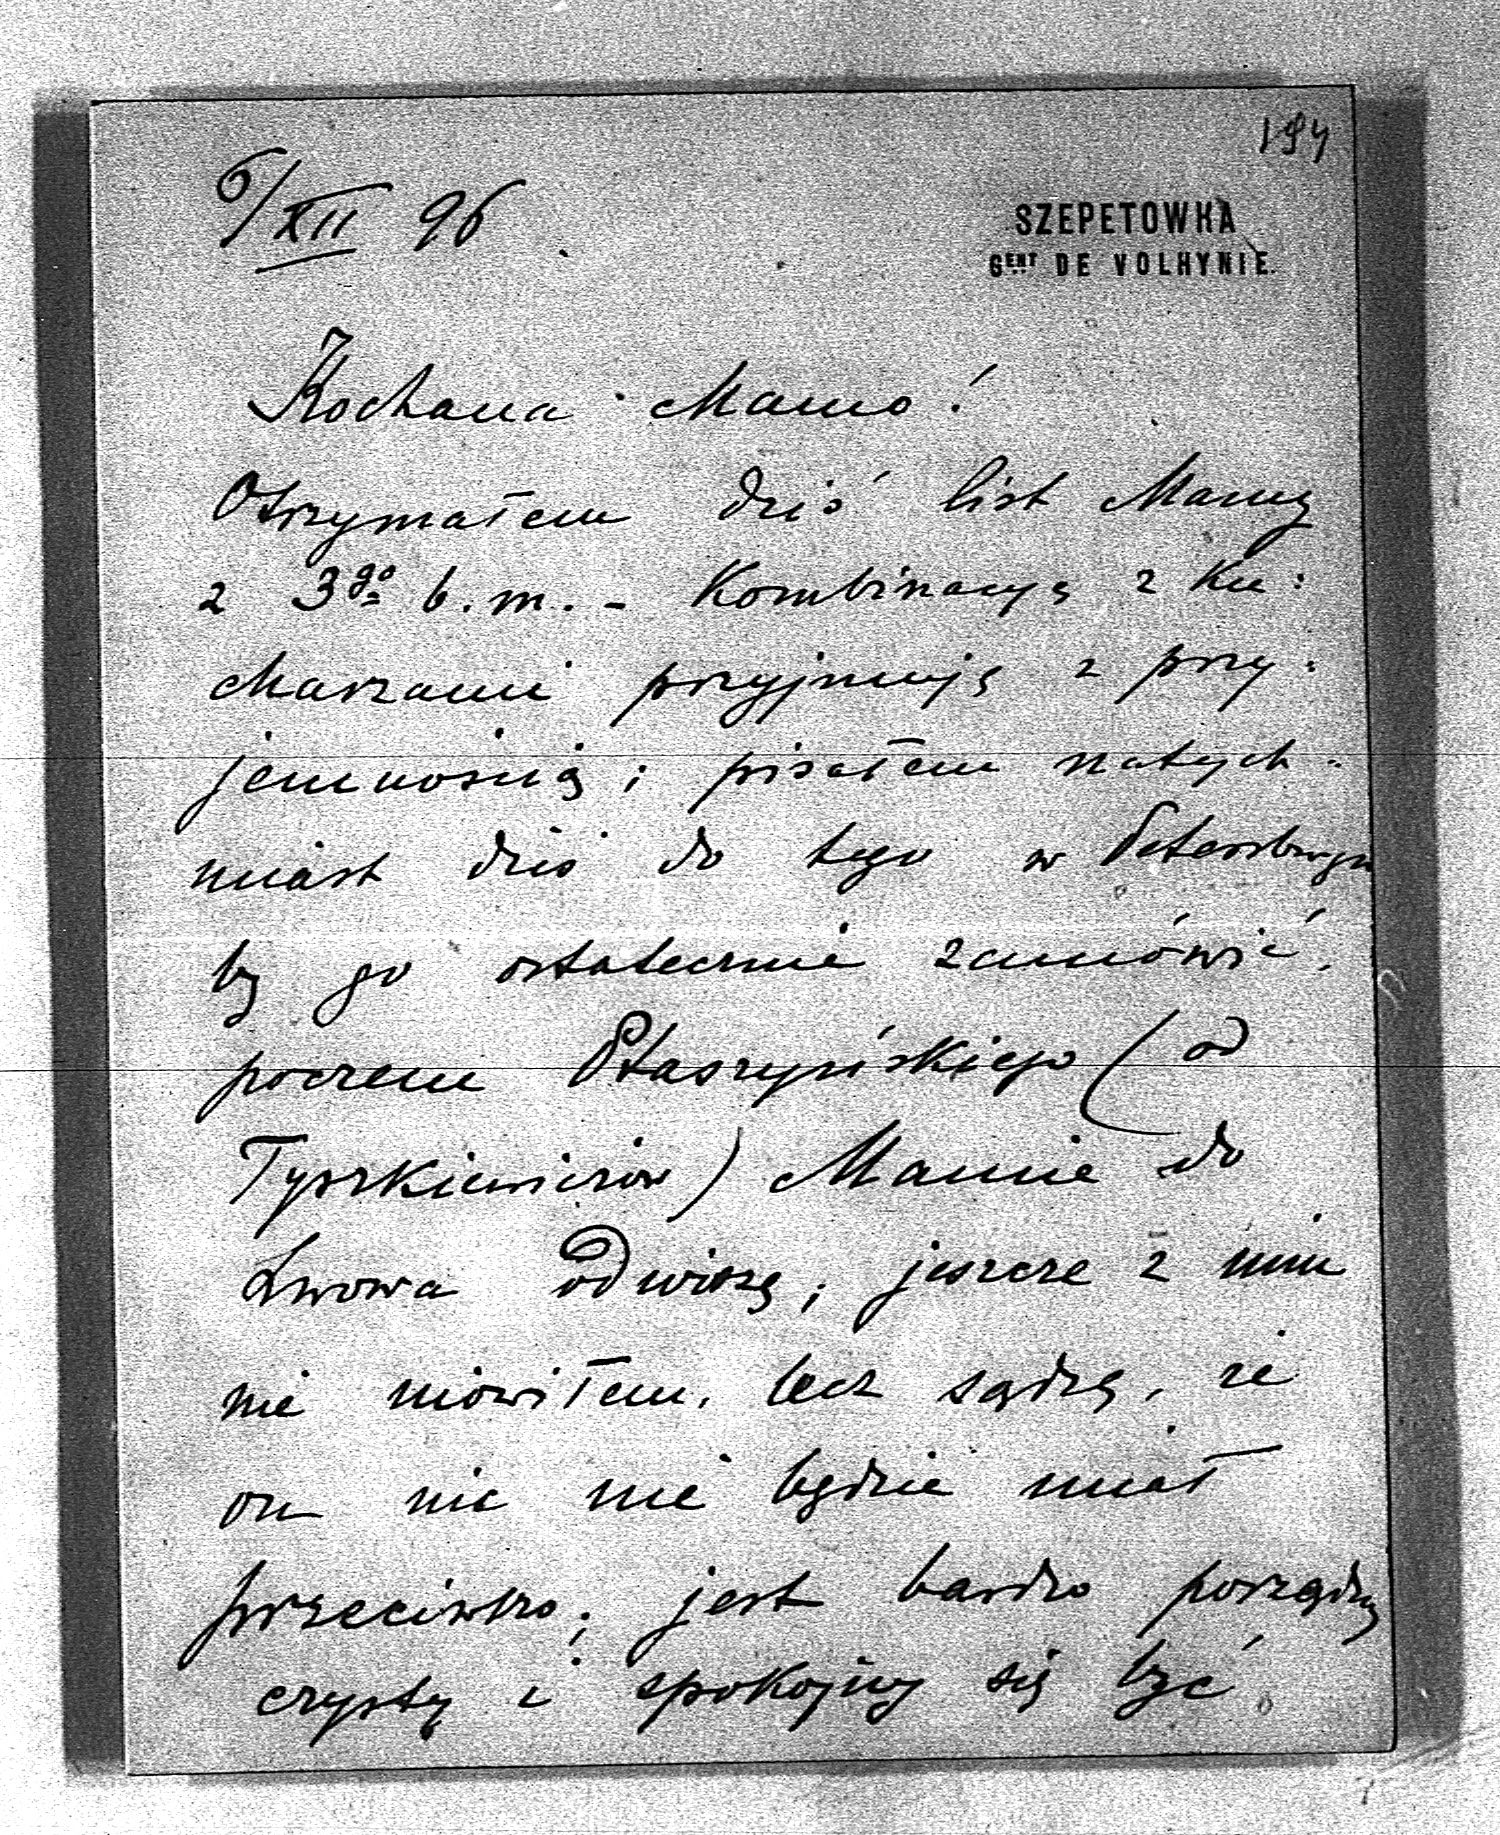 194
6/XII 96
SZEPETOWKA
GENT DE VOLHYNIE.
Kochana Mamo!
Otrzymałem dziś list Mamy
z 3go b. m. - Kombinacyę z ku:
charzami przyjmuję z przy:
jemnością; pisałem natych:
miast dziś do tego w Petersburgu
by go ostatecznie zamówić,
poczem Ptaszyńskiego (od
Tyszkiewiczów) Mamie do
Lwowa odwiozę; jeszcze z nim
nie mówiłem, lecz sądzę, że
on nic nie będzie miał
przeciwko; jest bardzo porządny
czysty i spokojny się być